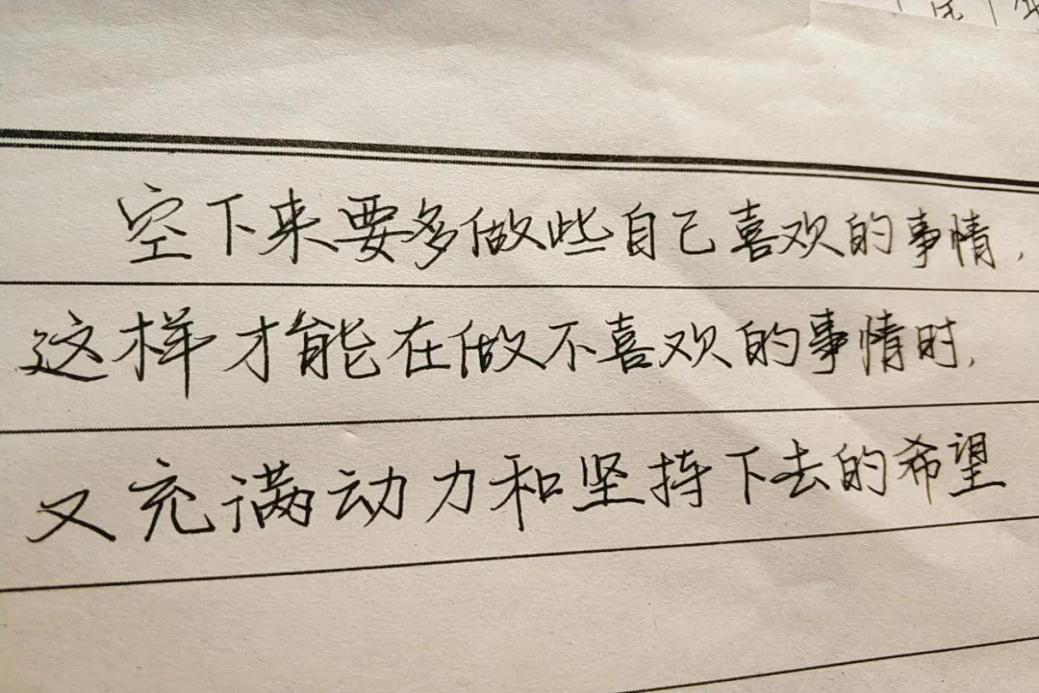 空下来要多做些自己喜欢的事情，
这样才能在做不喜欢的事情时，
又充满动力和坚持下去的希望